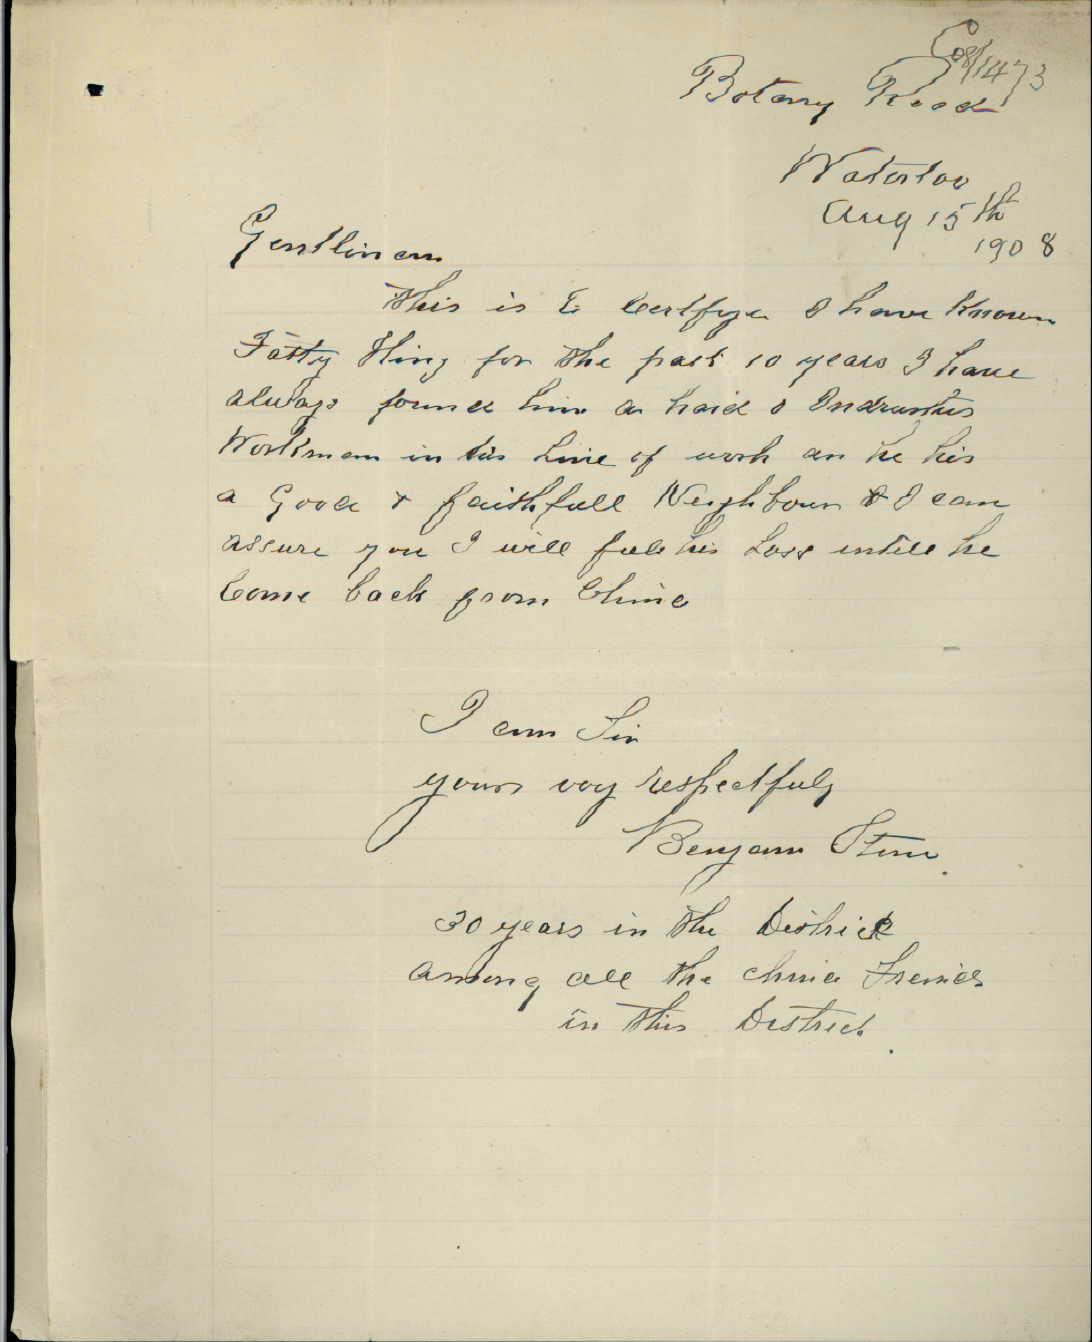 C08/1473
Botany Road
Waterloo
Aug 15th
1908
Gentlinem
This is to Certfye I have Known
Fatty Hing for the past 10 years I have
always found him a haid & Indrustus
Workman in his Line of work an he his
a Good & faithfull Neighbour & I can
assure you I will fule his Loss untill he
Come back from China
I am Sir
yours vry respectfuly
Benjamn
30 years in the District
among all the china Freinds
in this District.